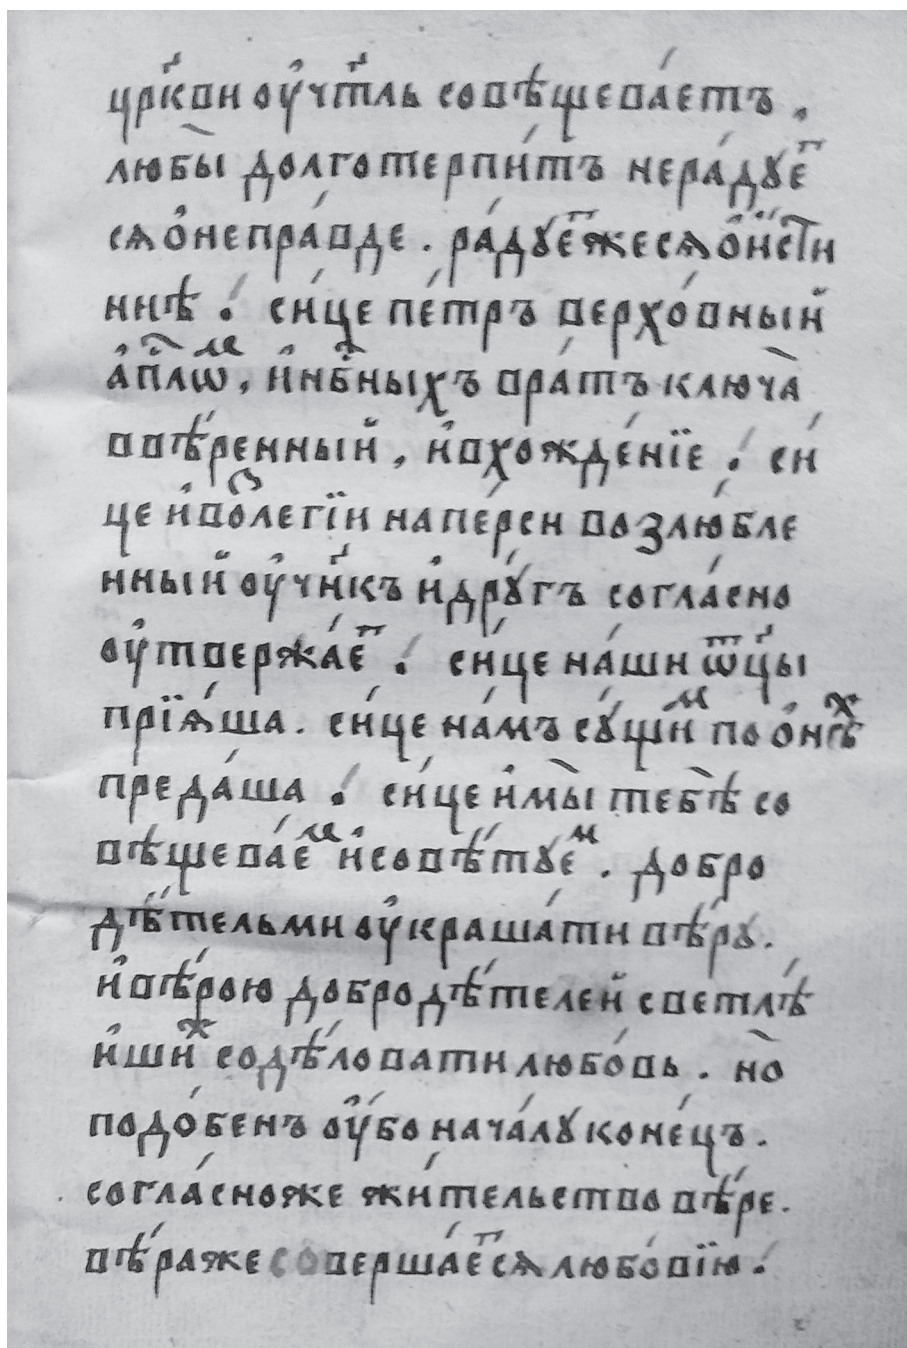 цр҃кви ᲂу҆чт҃ль совѣщева́етъ .
любы̀ долготерпи́тъ нера́дꙋеⷮ
сѧѻ҆непра́вде . ра́дꙋеⷮжесѧѻ҆и҆́стїн
ннѣ . си́це пе́тръ верхо́вный
а҆пⷭ҇лѡⷨ , и҆нбⷭ҇ныхъ вра́тъ ключа̀
ввѣ́ренный , и҆вхожде́нїе . си́
це и҆воⷥлегі́и напе́рси возлю́бле
нный ᲂу҆чн҃къ и҆дрꙋ́гъ согла́сно
ᲂу҆твержа́еⷮ . си́це на́ши ѿц҃ы
прїѧ́ша . си́це на́мъ сꙋ́щиⷨ по ѻ҆́ниⷯ
преда́ша . си́це и҆мы̀ тебѣ̀ со
вѣщева́еⷨ и҆совѣ́тꙋеⷨ . добро
дѣ́тельми ᲂу҆краша́ти вѣ́рꙋ .
и҆вѣ́рою добродѣ́телей светлѣ́
йшиⷤ содѣ́ловати любо́вь . но̀
подо́бенъ ᲂу҆́бо нача́лꙋ коне́цъ .
согла́сноже жи́тельство вѣ́ре .
вѣ́раже соверша́еⷮсѧ любо́вїю .